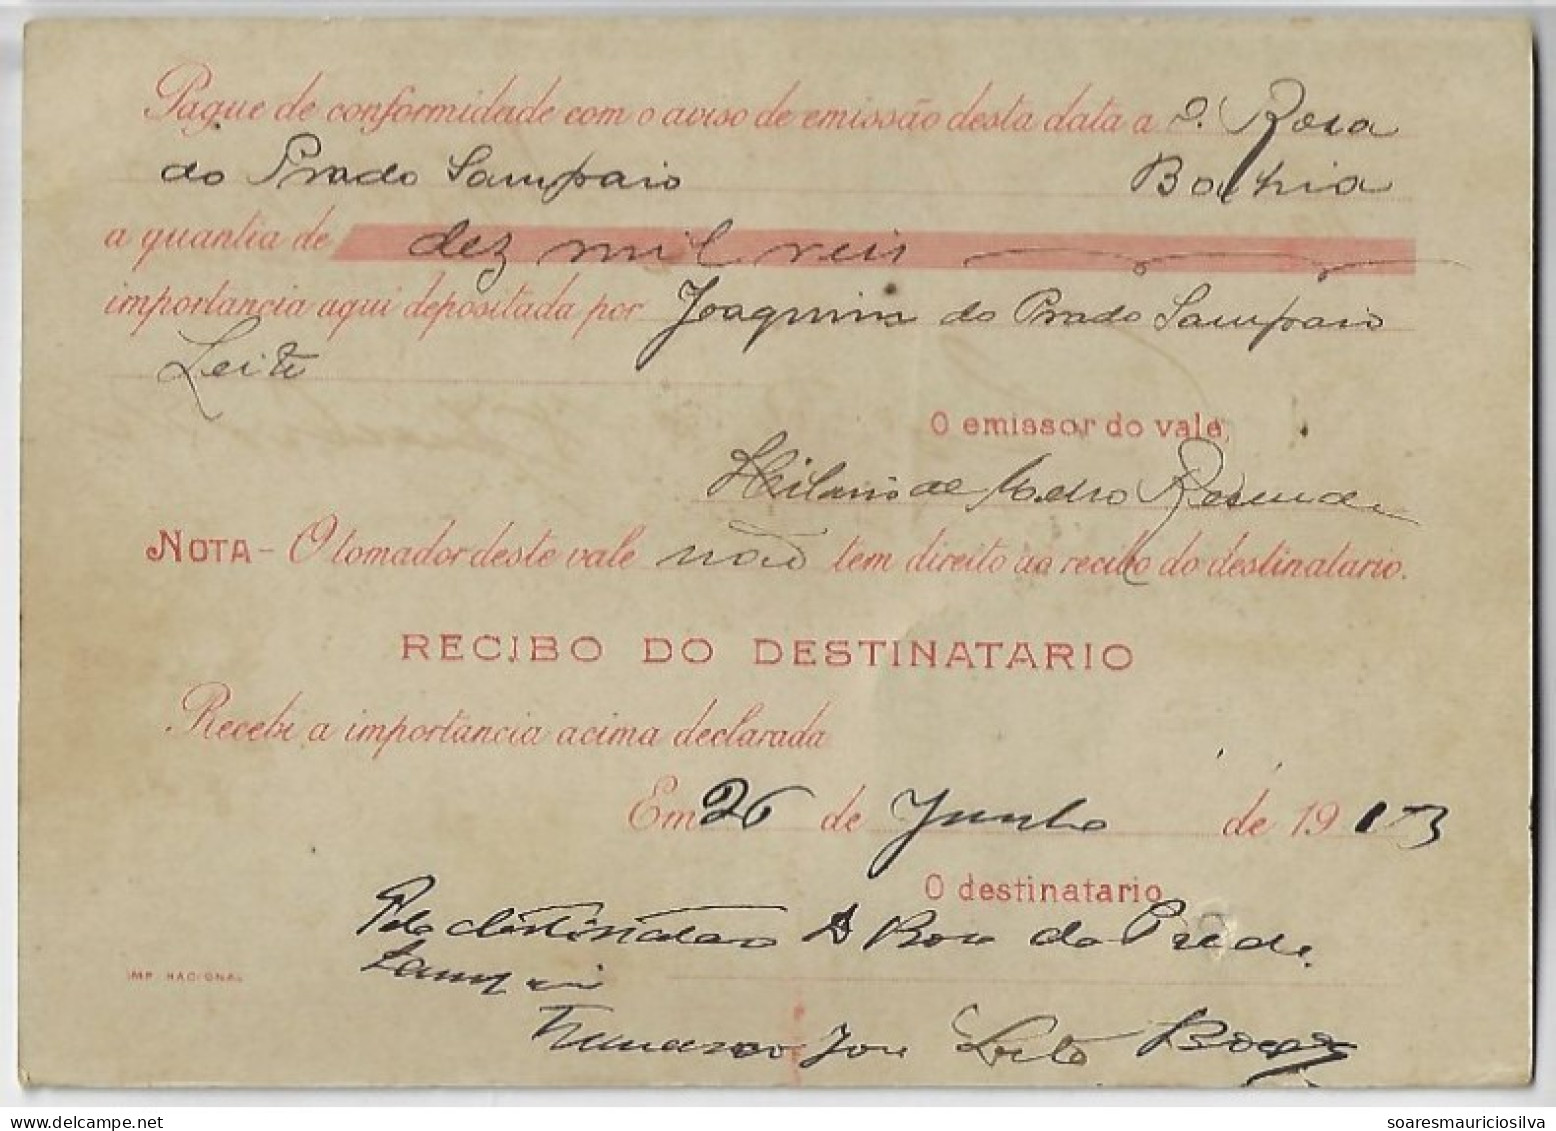 Pague de conformidade com o aviso de emissão desta data a D. Rosa
do Prado Sampaio Bahia
a quantia de dez mil reis
importancia aqui depositada por Joaquina do Prado Sampaio
Leite
O emissor do vale,
Hilario de Rezende
NOTA - O tomador deste vale não tem direito ao recibo do destinatario.
RECIBO DO DESTINATARIO
Recebi a importancia acima declarada
Em 26 de Junho de 1913
O destinatario
Pelo destinatario D Rosa do Prado
Sampaio
IMP. NACIONAL
Francisco José Leite Borges
soaresmauriciosilva